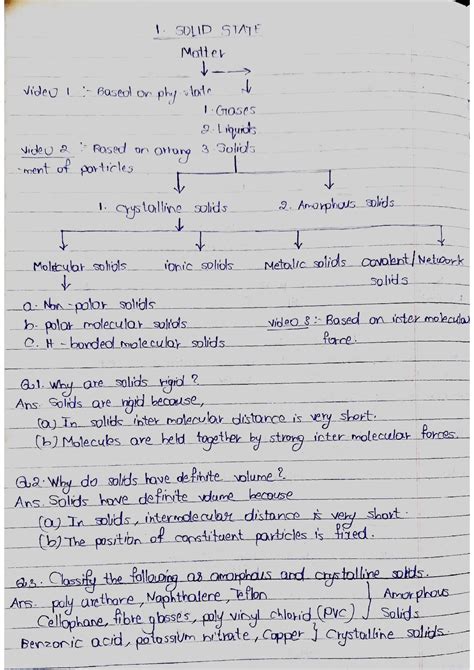 1. SOLID STATE
Matter
Video 1 :- Based on phy state
1. Gases
2. Liquids
Video 2 :- Based on arrang 3. Solids
-ment of particles
1. Crystalline solids 2. Amorphous solids
Molecular solids ionic solids Metalic solids Covalent/Network
solids
a. Non-polar solids
b. polar molecular solids Video 3 :- Based on inter molecular
C. H-bonded molecular solids force.
Q.1. Why are solids rigid ?
Ans. Solids are rigid because,
(a) In solids inter molecular distance is very short.
(b) Molecules are held together by strong icter molecular forces.
Q.2. Why do solids have definite volume ?
Ans. Solids have definite volume because
(a) In solids, intermolecular distance is very short.
(b) The position of constituent particles is fixed.
Q.3. Classify the following as amorphous and crystalline solids.
Ans. poly urethane, Naphthalene, Teflon } Amorphous
Cellophane, fibre glasses, poly vinyl chlorid (PVC) } Solids
Benzonic acid, potassium nitrate, Copper } Crystalline solids